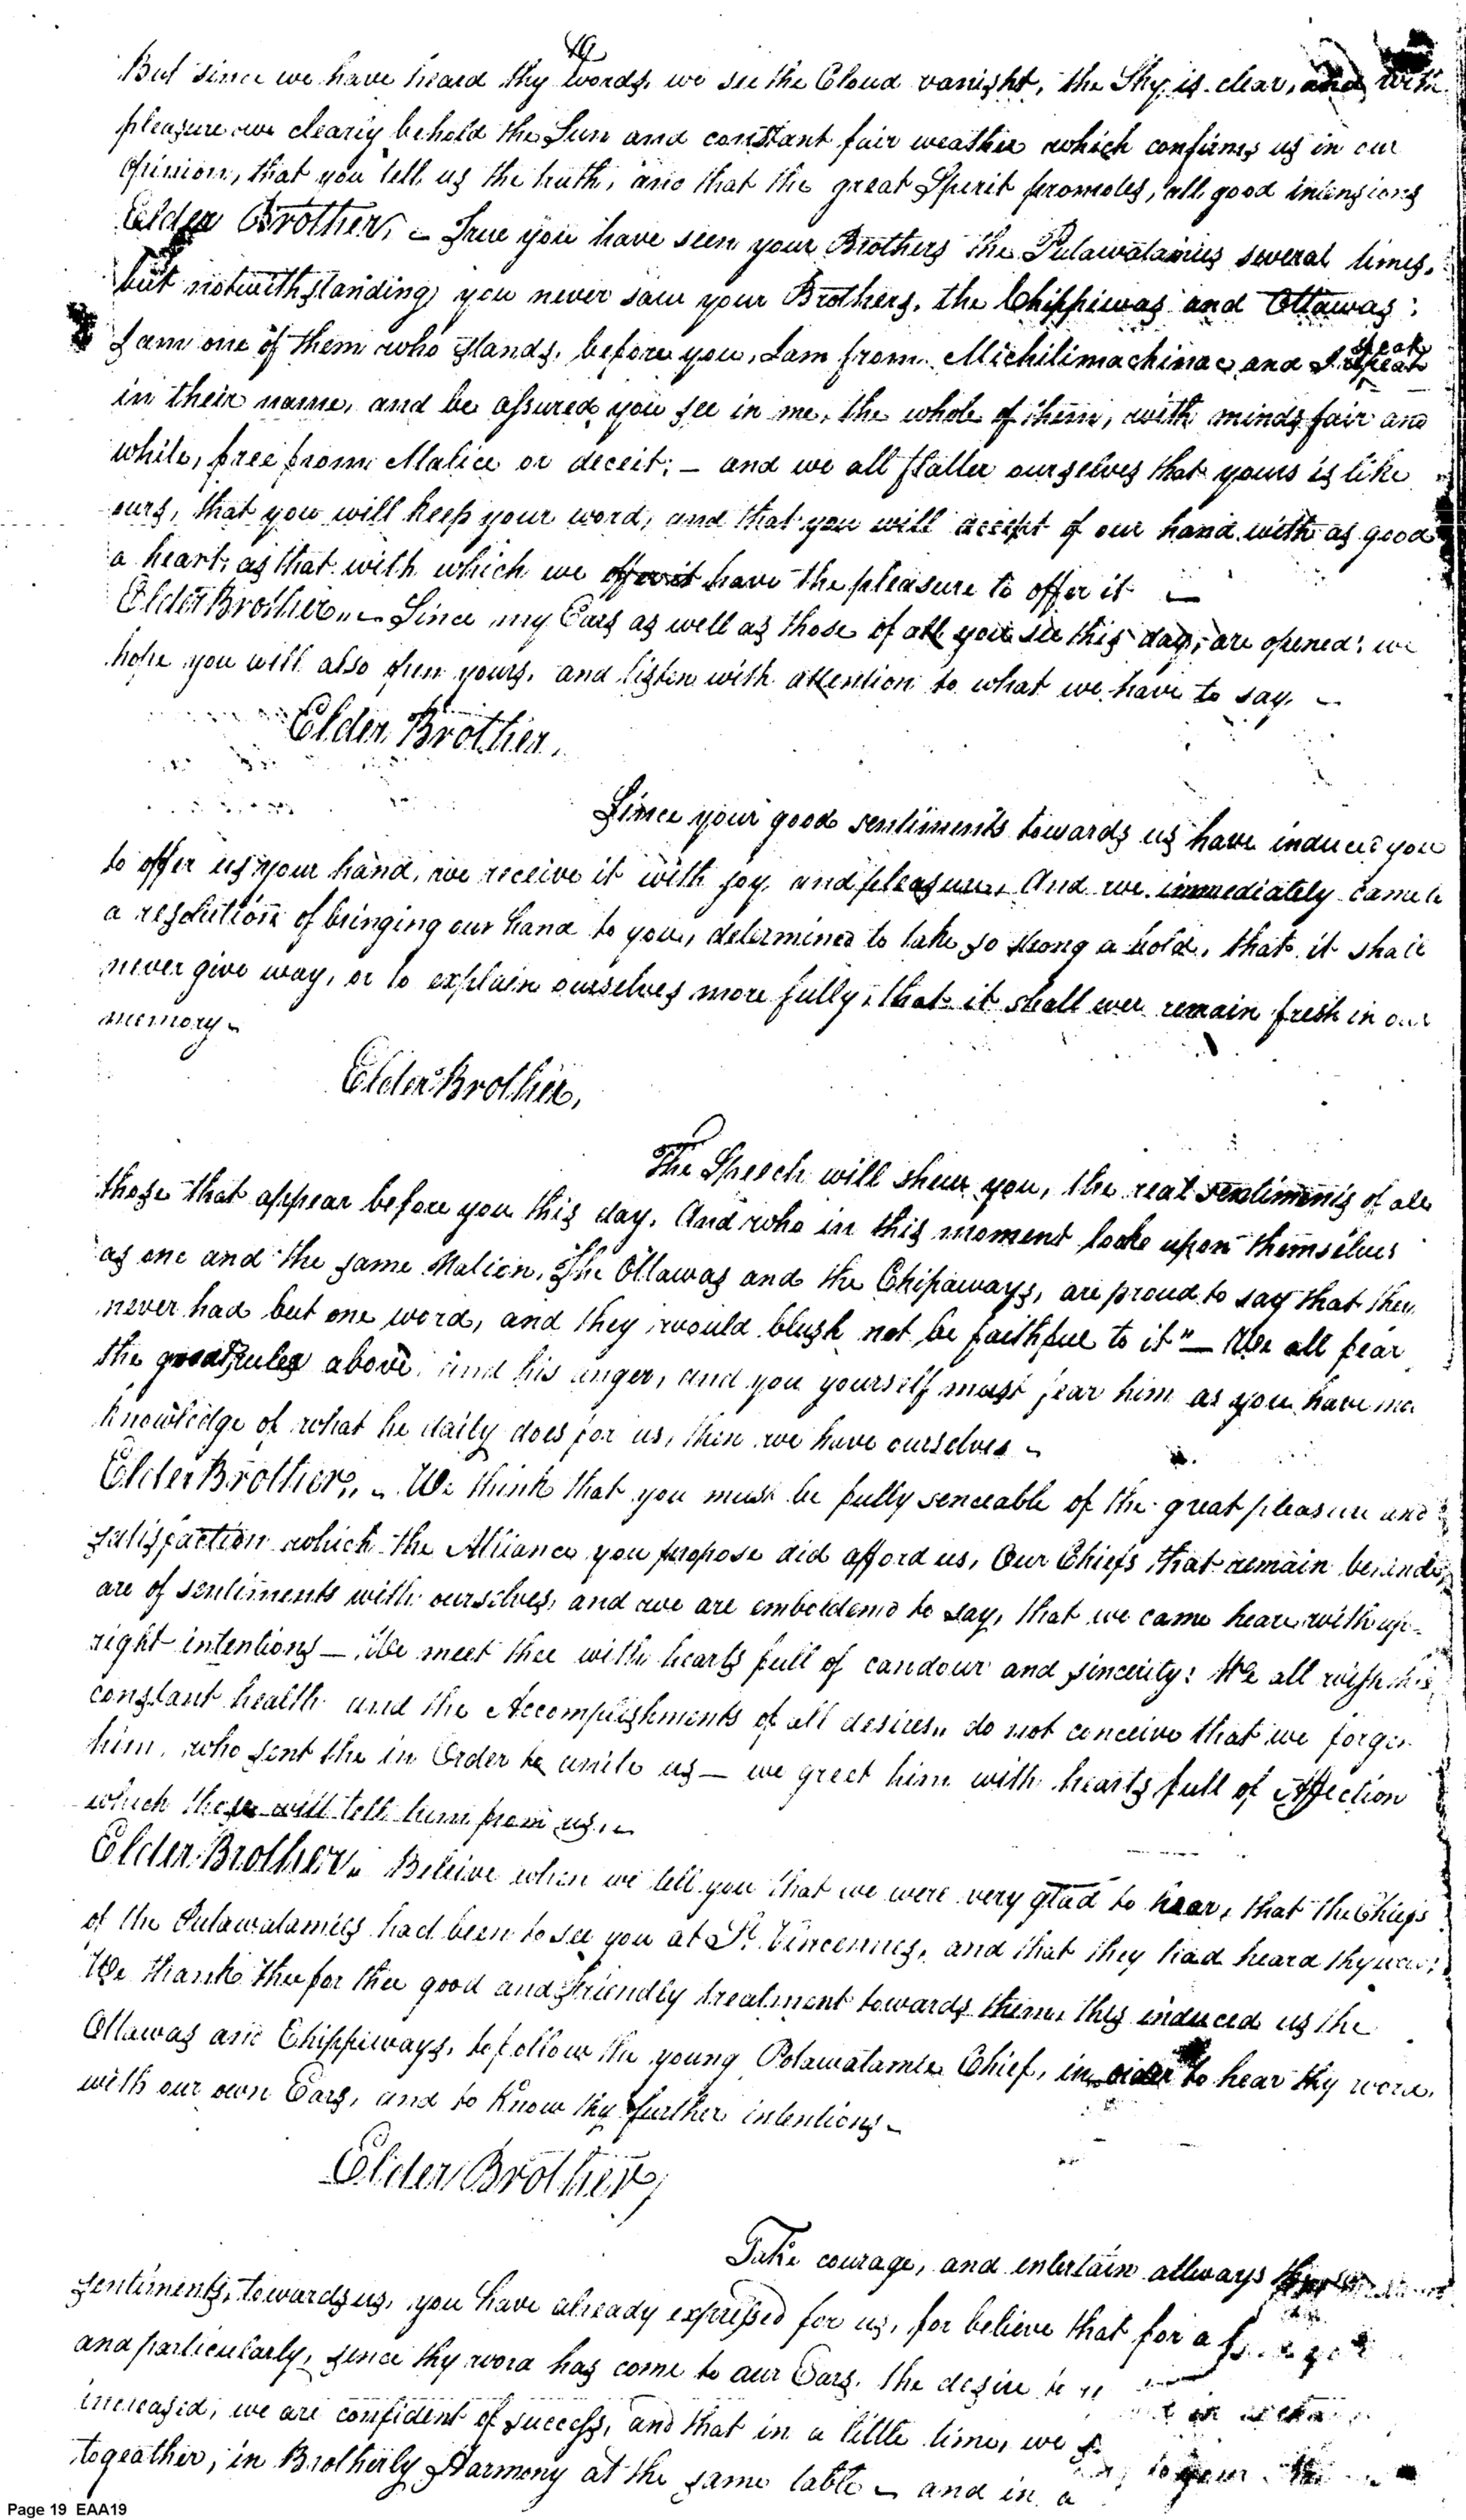 19
But since we have heard thy words, we see the Cloud vanisht, the Sky is clear, and with
pleasure we clearly behold the Sun and constant fair weather which confirms us in our
opinion, that you tell us the truth, and that the great Spirit promotes, all good intensions
Elder Brother, – True you have seen your Brothers the Putawatamies several times,
but notwithstanding you never saw your Brothers, the Chippiwas and Ottawas;
speak
I am one of them who stands, before you, I am from Michilimachinac and I repeat
in their name, and be assured you see in me, the whole of them, with minds fair and
white, free from Malice or deceit; – and we all flatter ourselves that yours is like
ours, that you will keep your word, and that you will accept of our hand with as good
a heart, as that with which we offer it have the pleasure to offer it –
Elder Brother, – Since my Ears as well as those of all you see this day, are opened; we
hope you will also open yours, and listen with attention to what we have to say –
Elder Brother,
Since your good sentiments towards us have induced you
to offer us your hand, we receive it with joy and pleasure, And we immediately came to
a resolution of bringing our hand to you, determined to take so strong a hold, that it shall
never give way, or to explain ourselves more fully, that it shall ever remain fresh in our
memory –
Elder Brother,
The Speech will shew you, the real sentiments of all
those that appear before you this day, And who in this moment looke upon themselves
as one and the same Nation, The Ottawas and the Chipaways, are proud to say that they
never had but one word, and they would blush not be faithful to it" – We all fear
the great ruler above, and his anger, and you yourself must fear him as you have mor
knowledge of what he daily does for us, then we have ourselves –
Elder Brother, – We think that you must be fully senceable of the great pleasure and
satisfaction which the Alliance you propose did afford us, Our Chiefs that remain behind,
are of sentiments with ourselves, and we are emboldened to say, that we came heare with up-
right intentions – We meet thee with hearts full of candour and sincerity; We all wish thee
constant health and the Accomplishments of all desires, do not conceive that we forget
him, who sent the in Order to unite us – we greet him with hearts full of Affection
which thou will tell him from us, –
Elder Brother, Beleive when we tell you that we were very glad to hear, that the Chiefs
of the Putawatamies had been to see you at St. Vincennes, and that they had heard thy word:
We thank thee for thee good and friendly treatment towards them, this induced us the
Ottawas and Chippiways, to follow the young Potawatamie Chief, in order to hear thy word,
with our own Ears, and to know thy further intentions –
Elder Brother,
Take courage, and entertain allways
sentiments, towards us, you have already expressed for us, for believe that for a
and particularly, since thy word has come to our Ears, the desire to
increased, we are confident of success, and that in a little time, we
togeather, in Brotherly Harmony at the same table – and in a
Page 19 EAA19